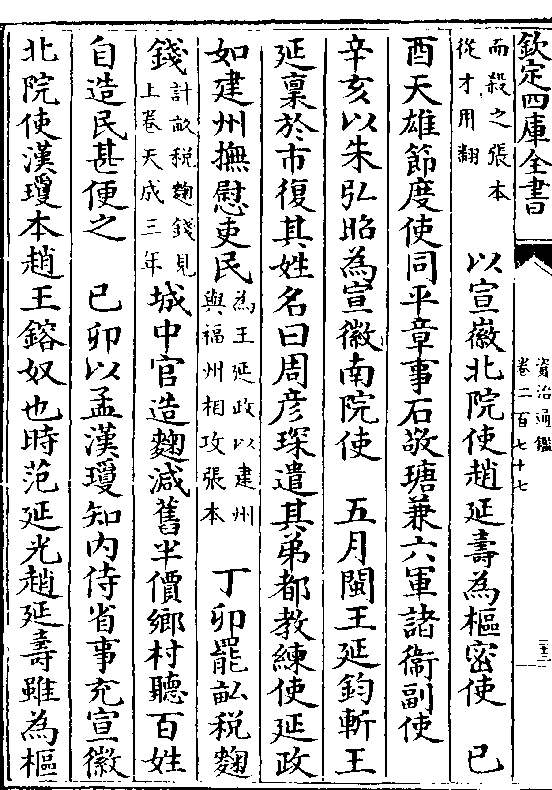 欽定四庫全書
資治通鑑
卷二百七十七
而殺之張本
從才用翻
以宣徽北院使趙延壽為樞密使 己
酉天雄節度使同平章事石敬瑭兼六軍諸衞副使
辛亥以朱弘昭為宣徽南院使 五月閩王延鈞斬王
延稟於市復其姓名曰周彦琛遣其弟都教練使延政
如建州撫慰吏民
為王延政以建州
與福州相攻張本
丁卯罷畝税麴
錢
計畝税麴錢見
上卷天成三年
城中官造麴減舊半價鄉村聽百姓
自造民甚便之 己卯以孟漢瓊知内侍省事充宣徽
北院使漢瓊本趙王鎔奴也時范延光趙延壽雖為樞